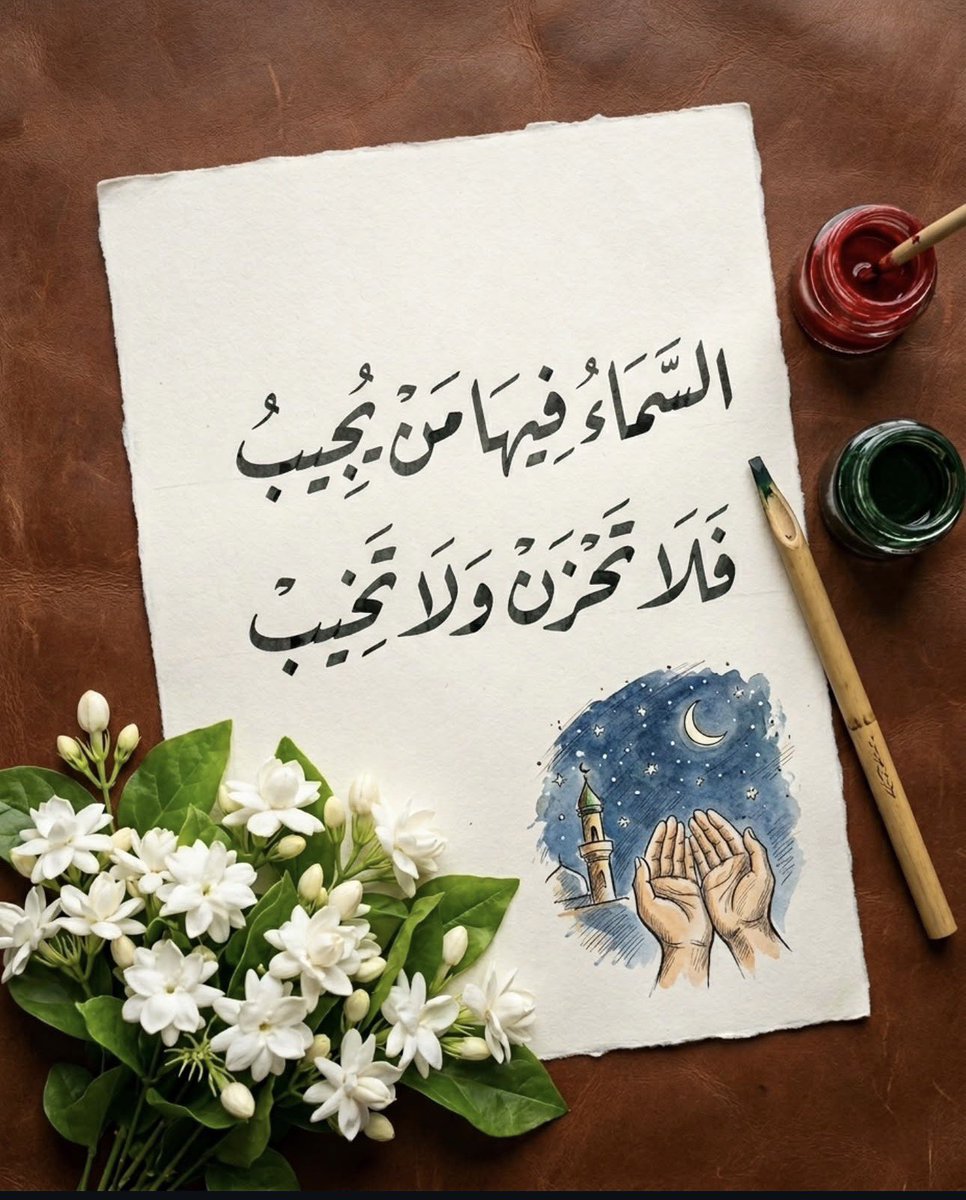 السَّمَاءُ فِيهَا مَنْ يُجِيبُ
فَلَا تَحْزَنْ وَلَا تَخِيبْ